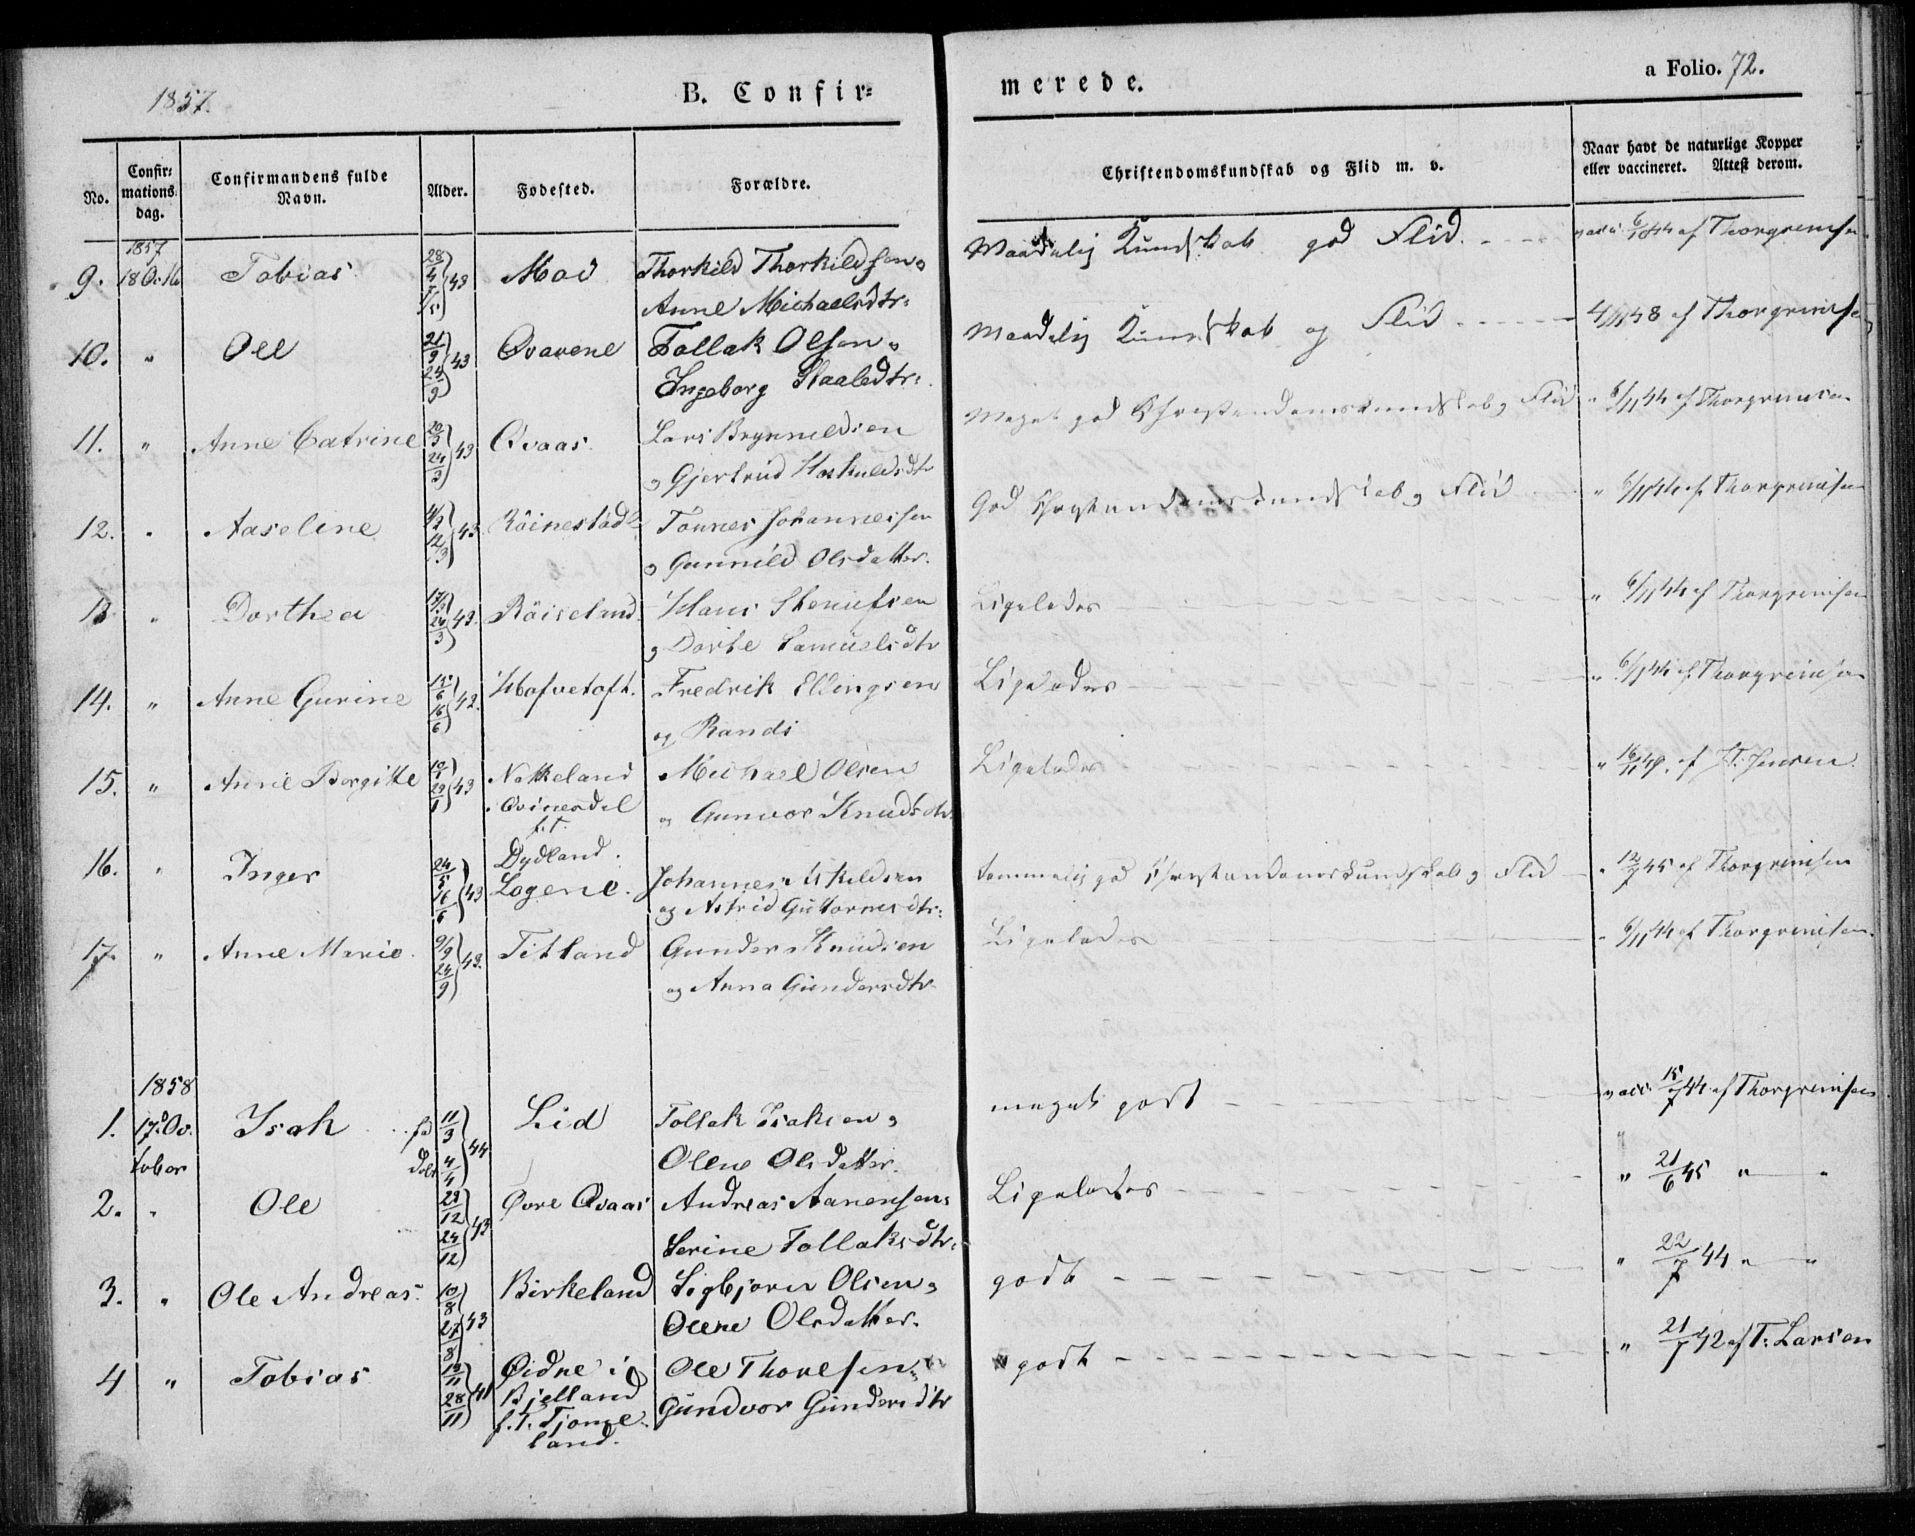 1857.
B. Confir=
merede.
a Folio. 72.
No.
Confir=
mations
dag.
Confirmandens fulde
Navn.
Alder.
Fødested.
Forældre.
Christendomskundskab og Flid m. v.
Naar havt de naturlige Kopper
eller vaccineret. Attest derom.
1857
9. Tobias 28/4 43 Moi Thorkild Thorkildsen o
Anne Michaelsdtr:
Maadelig Kundskab god Flid.
af Thorgrimsen
10. " Ole 21/9 24/9 43 Qvavene Tollak Olsen o
Ingeborg Staalesdtr.
Maadelig Kundskab og Flid
4/11 48 af Thorgrimsen
11. " Anne Catrine 20/3 24/3 43 Qvaas. Lars Brynnildsen
o Gjertrud
Meget god Christendomskundskab o Flid
" 6/11 44 af Thorgrimsen
12. " Aaseline 12/3 43 Röinestad Tønnes Johannessen
o Gunnild Olsdatter.
God Christendomskundskab o Flid
" 6/11 44 af Thorgrimsen
13 " Dorthea 24/3 43. Röiseland Hans
o Dorte Samuelsdtr
Ligeledes
" 6/11 44 af Thorgrimsen
14. " Anne Gurine 16/6 42. Fredrik Ellingsen
og Randi
Ligeledes
" 6/11 44 af Thorgrimsen
15. " Anne Borgitte 29/1 43 Netteland Michael Olsen
i Qvinesdal
f. T.
og Gunvor Knudsdtr
Ligeledes
" 16/11 49. af J. T. Jensen.
16. " Inger 24/5 16/6 43 Dydland.
Logene. Johannes Askildsen
og Astrid Guttormsdtr:
temmelig god Christendomskundskab o Flid
" 12/7 45 af Thorgrimsen
17. " Anne Marie. 9/9 24/9 43. Titland Gunder Knudsen
og Anna Gundersdtr
Ligeledes
" 6/11 44 af Thorgrimsen.
1858
1. 17. Oc
tober Isak fd 11/3 døbt 4/4 44 Lid Tollak Isaksen o
Olene Olsdatter.
meget godt
vacc. 15/7 44 af Thorgrimsen
2. " Ole 29/12 24/12 43 Øvre Qvaas Andreas Aanensen o
Serine Tollaksdtr:
Ligeledes
" 21/6 45 " "
3. " Ole Andreas. 10/8 27/8 43 Birkeland Sigbjørn Olsen o
Olene Olsdatter.
godt
" 22/7 44 " "
4 " Tobias 19/11 28/11 41 Øidne i
Bjelland
f. T. Tjome=
land. Ole Thorlsen o
Gundvor Gundersdtr
godt
" 21/7 42 af T. Larsen